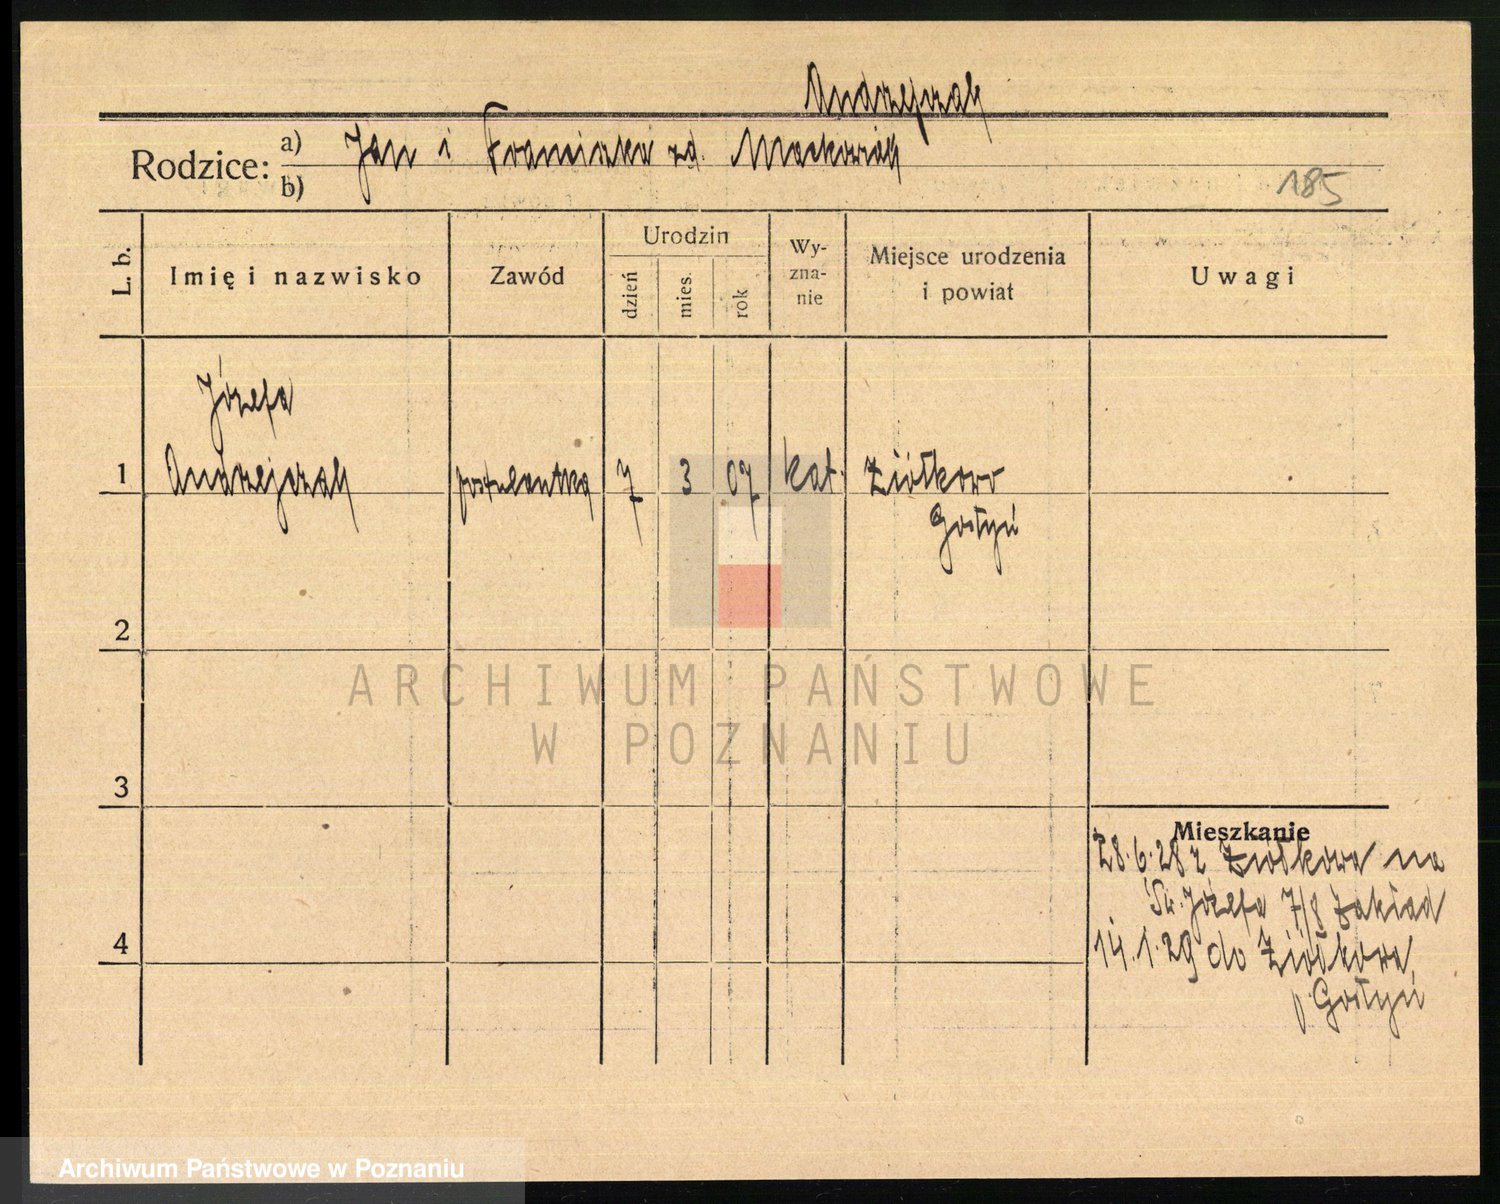 Andrzejczak
Rodzice: a) Jan i Franciszka zd. Maćkowiak
b)
185
L. b.
Imię i nazwisko
Zawód
Urodzin
dzień
mies.
rok
Wy-
zna-
nie
Miejsce urodzenia
i powiat
Uwagi
Józefa
1 Andrzejczak postulantka 7 3 07 kat. Ziółkowo
Gostyń
2
ARCHIWUM PAŃSTWOWE
W POZNANIU
3
Mieszkanie
28.6.28 z Ziółkowa na
Św. Józefa 7/8 Zakład
4
14.1.29 do Ziółkowa,
p. Gostyń
Archiwum Państwowe w Poznaniu